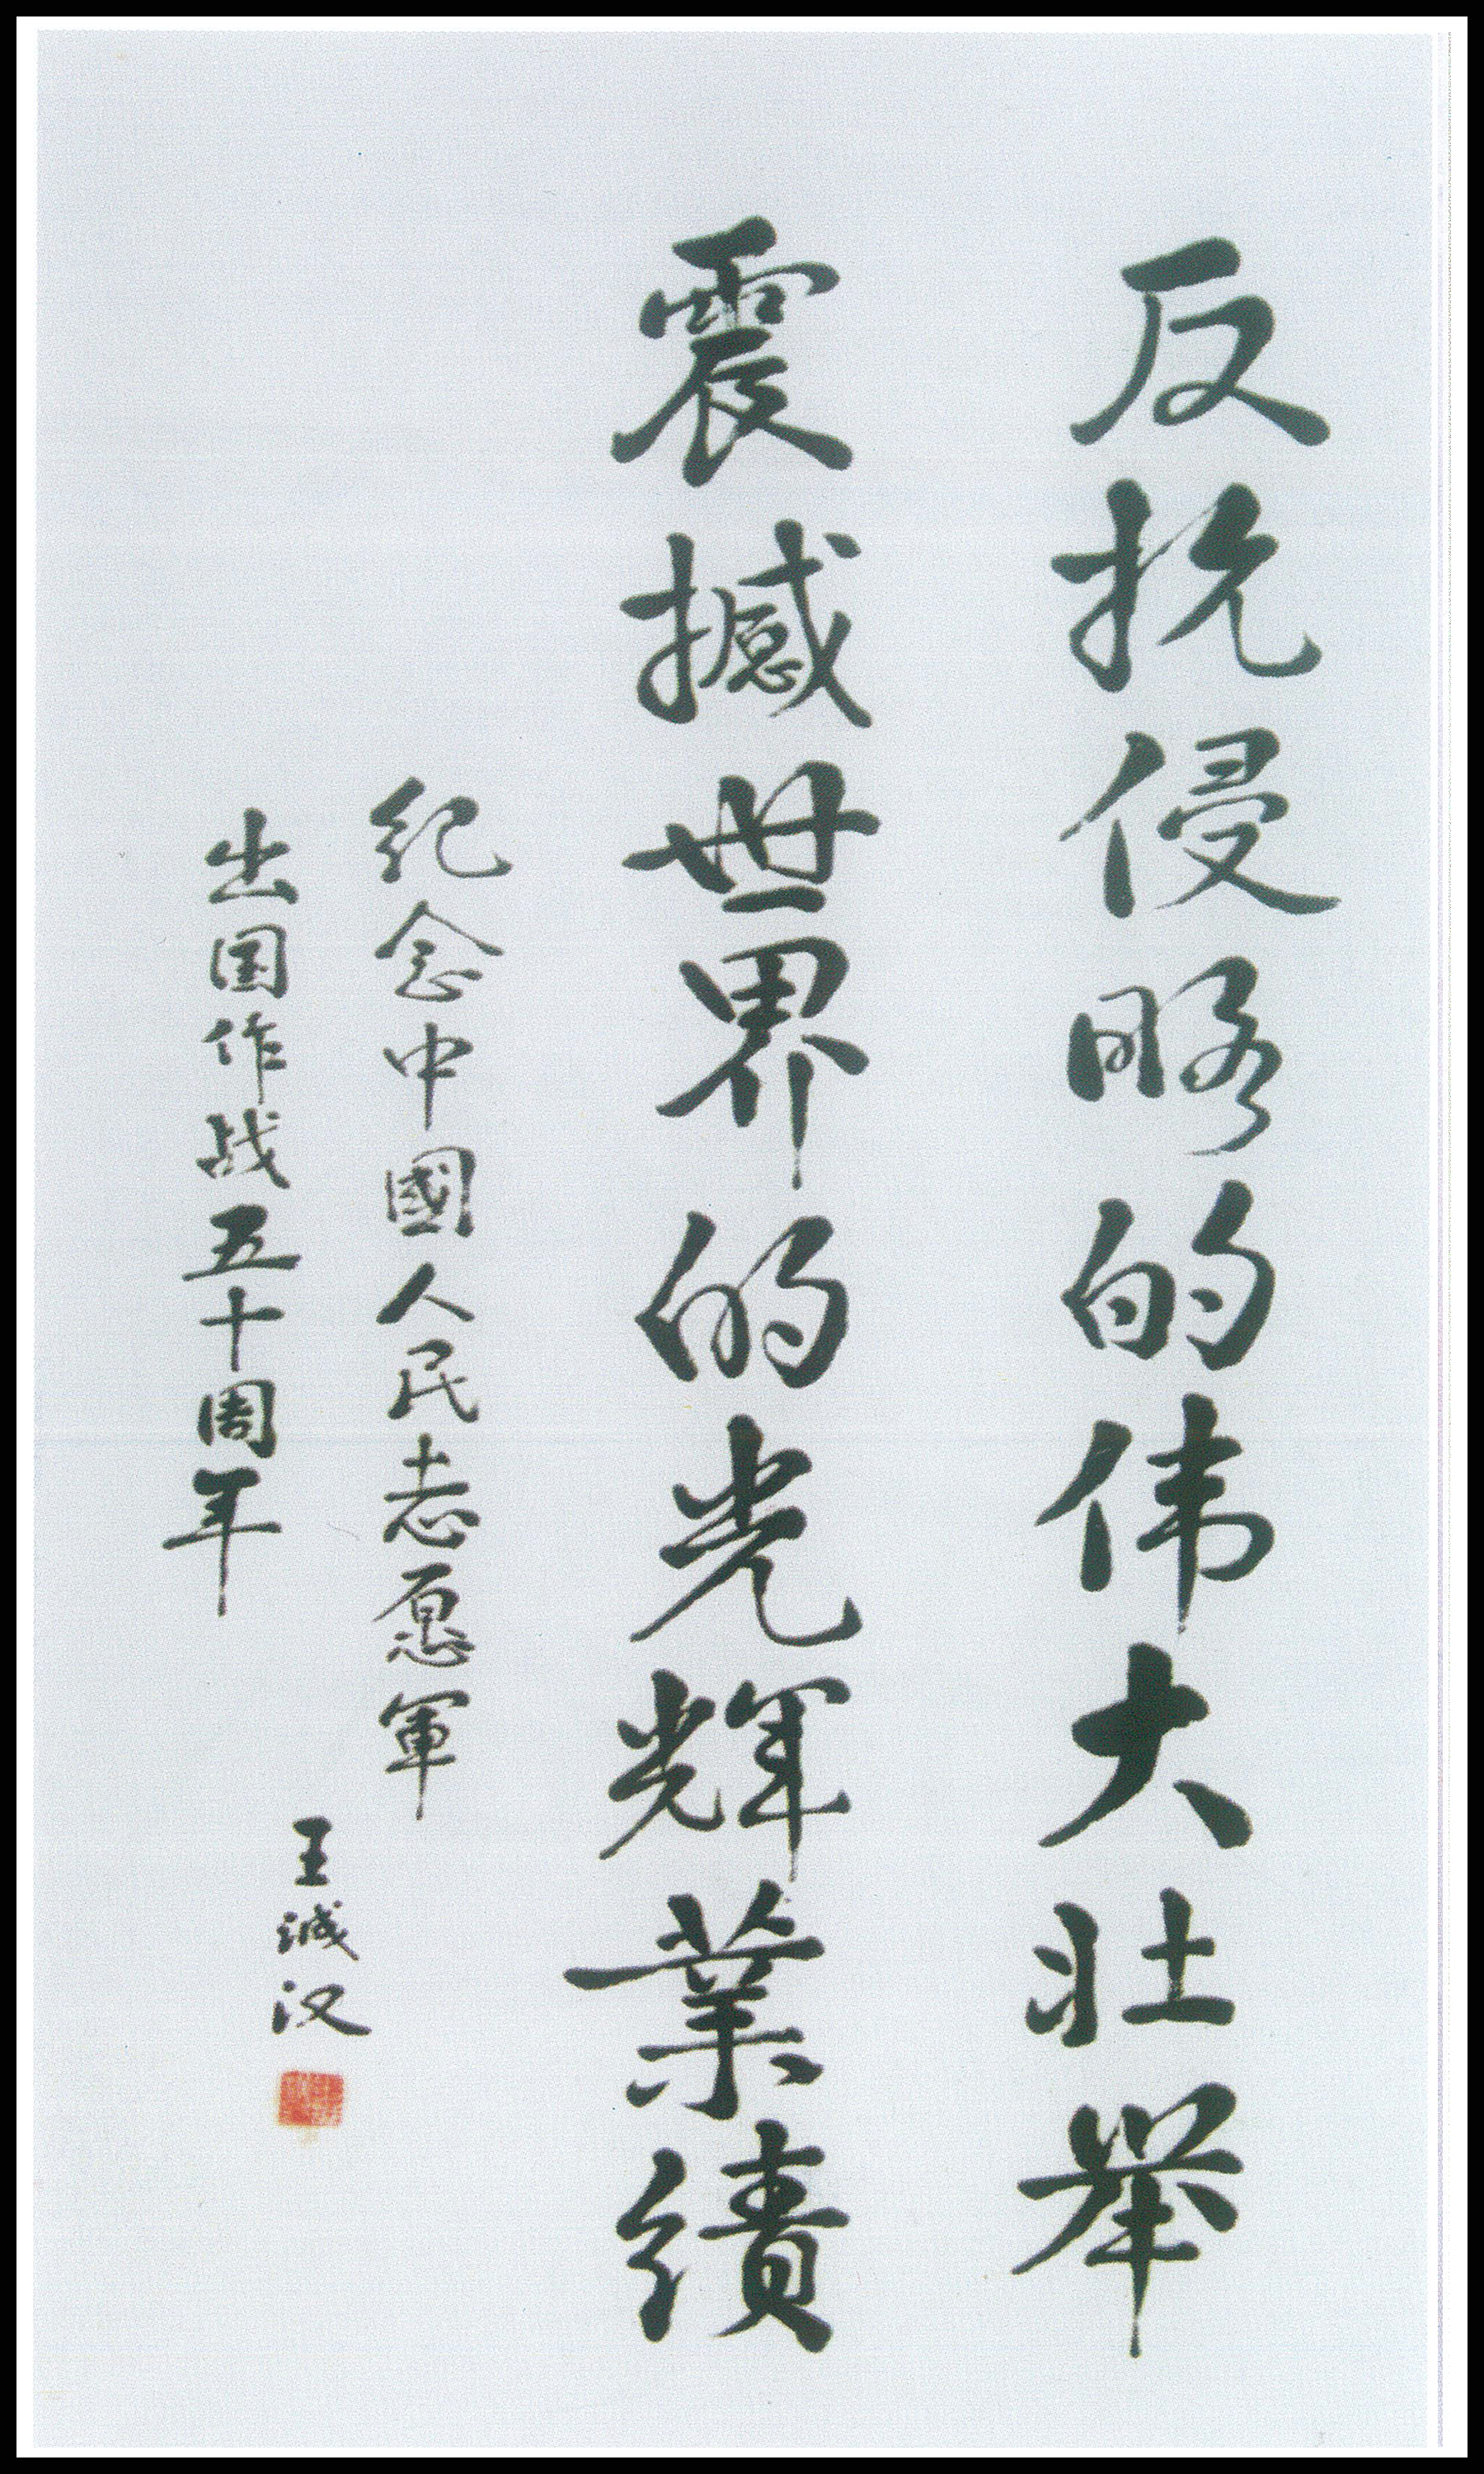 反抗侵略的伟大壮举
震撼世界的光辉業績
纪念中國人民志愿軍
出国作战五十周年
王诚汉